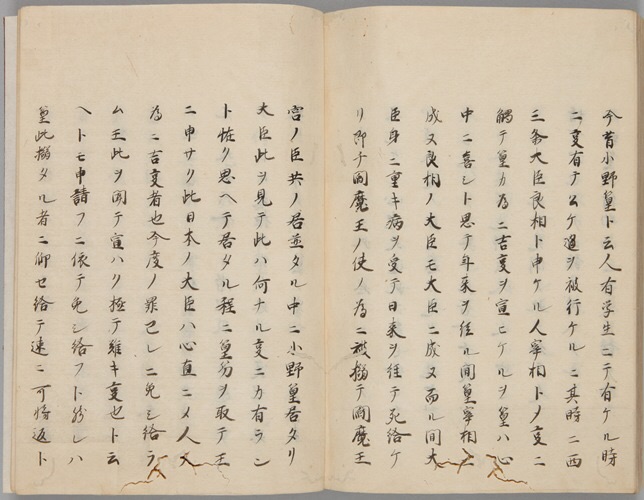 今昔小野篁ト云人有学生ニテ有ケル時
ニ事有テ公ケ過ヲ被行ケルニ其時ニ西
三条大臣良相ト申ケル人宰相トメ事ニ
觸テ篁カ為ニ吉事ヲ宣ヒケルヲ篁ハ心
中ニ喜シト思テ年来ヲ経ル間篁宰相ニ
成又良相ノ大臣モ大臣ニ成又而ル間大
臣身ニ重キ病ヲ受テ日来ヲ経テ死給ケ
リ即チ閻魔王ノ使ノ為ニ被搦テ閻魔王
宮ノ臣共ノ居並タル中ニ小野篁居タリ
大臣此ヲ見テ此ハ何ナル事ニカ有ラン
ト怪ク思ヘテ居タル程ニ篁笏ヲ取テ王
ニ申サク此日本ノ大臣ハ心直ニメ人ノ
為ニ吉事者也今度ノ罪己レニ免シ給ラ
ム王此ヲ聞テ宣ハク極テ難キ事也ト云
ヘトモ申請フニ依テ免シ給フト然レハ
篁此搦タル者ニ仰セ給テ速ニ可将返ト